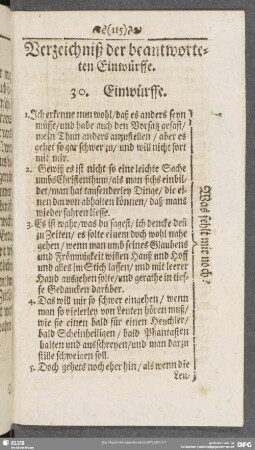 (115)
Verzeichniß der beantworte-
ten Einwürffe.
30. Einwürffe.
1. Ich erkenne nun wohl/ daß es anders seyn
müsse/ und habe auch den Vorsatz gefast/
mein Thun anders anzustellen/ aber es
gehet so gar schwer zu/ und will nicht fort
mit mir.
2. Gewiß es ist nicht so eine leichte Sache
umbs Christenthum/ als man sichs einbil-
det/ man hat tausenderley Dinge/ die ei-
nen davon abhalten können/ daß mans
wieder fahren liesse.
3. Es ist wahr/ was du sagest/ ich dencke deñ
zu Zeiten/ es solte einem doch wohl nahe
gehen/ wenn man umb seines Glaubens
und Frömmigkeit willen Hauß und Hoff
und alles im Stich lassen/ und mit leerer
Hand ausgehen solte/ und gerathe in tief-
fe Gedancken darüber.
4. Das will mir so schwer eingehen/ wenn
man so vielerley von Leuten hören muß/
wie sie einen bald für einen Heuchler/
bald Scheinheiligen/ bald Phantasten
halten und ausschreyen/ und man darzu
stille schweigen soll.
5. Doch gehets noch eher hin/ als wenn die
Leu-
Was fehlt mir noch?
SLUB
DFG